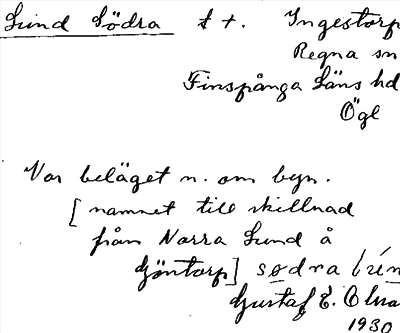 Lund Södra t +. Ingestorp
Regna sn
Finspånga läns hd
Ögl
Var beläget n. om byn.
[namnet till skillnad
från Norra Lund å
Göntorp] sødra
Gustaf E.
1930